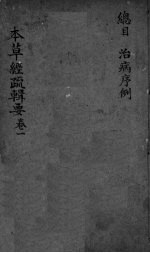 總目　治病序例
本草經疏輯要 卷一